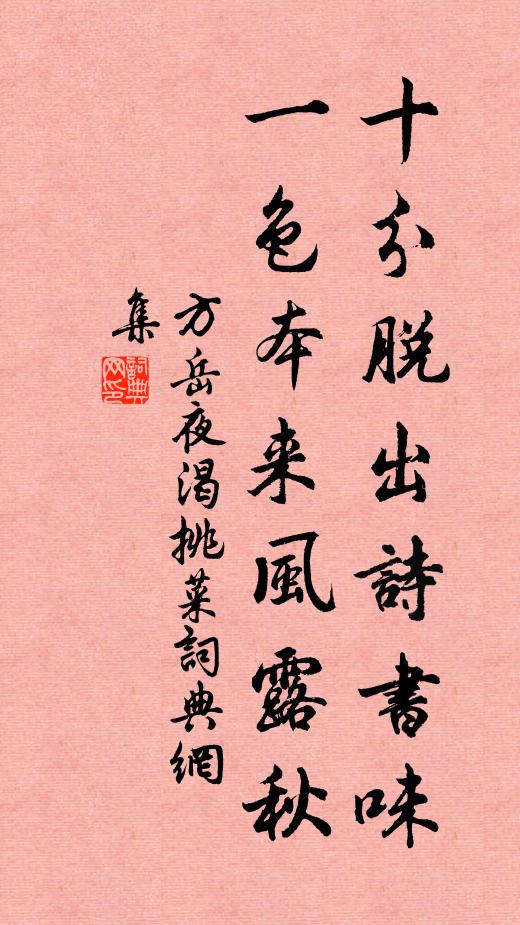 十分脱出詩書味
一色本来風露秋
方岳夜渴挑菜詞典網
集
詞典
网印